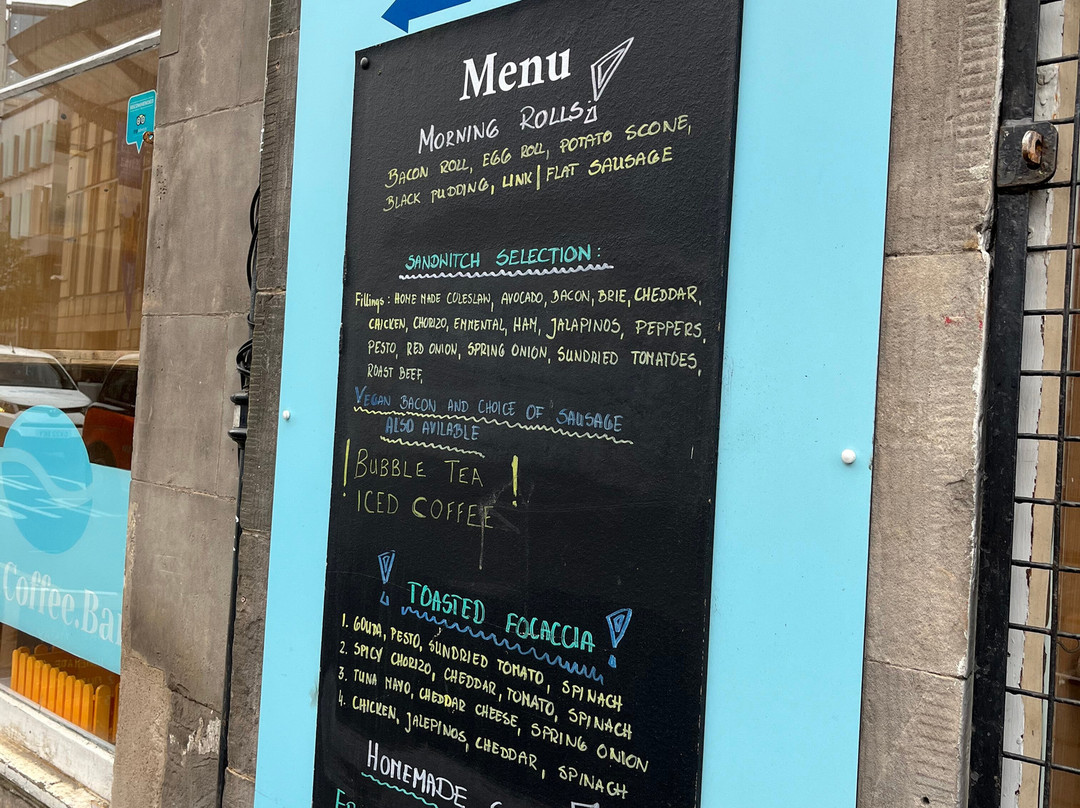 Menu
MORNING ROLLS!
BACON ROLL, EGG ROLL, POTATO SCONE,
BLACK PUDDING, LINK | FLAT SAUSAGE
SANDWITCH SELECTION:
Fillings: HOME MADE COLESLAW, AVOCADO, BACON, BRIE, CHEDDAR,
CHICKEN, CHORIZO, EMMENTAL, HAM, JALAPINOS, PEPPERS,
PESTO, RED ONION, SPRING ONION, SUNDRIED TOMATOES,
ROAST BEEF,
VEGAN BACON AND CHOICE OF SAUSAGE
ALSO AVILABLE
! BUBBLE TEA !
ICED COFFEE
! TOASTED FOCACCIA !
1. GOUDA, PESTO, SUNDRIED TOMATO, SPINACH
2. SPICY CHORIZO, CHEDDAR, TOMATO, SPINACH
3. TUNA MAYO, CHEDDAR CHEESE, SPRING ONION
4. CHICKEN, JALEPINOS, CHEDDAR, SPINACH
HOMEMADE
Coffee.Bar